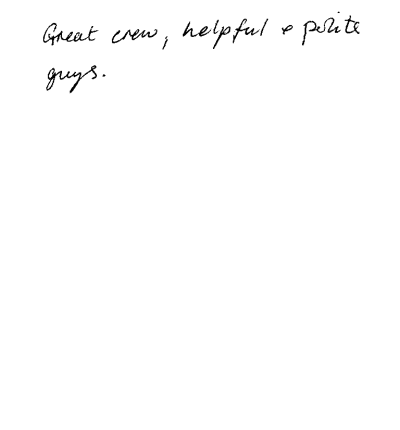 Great crew, helpful & polite
guys.